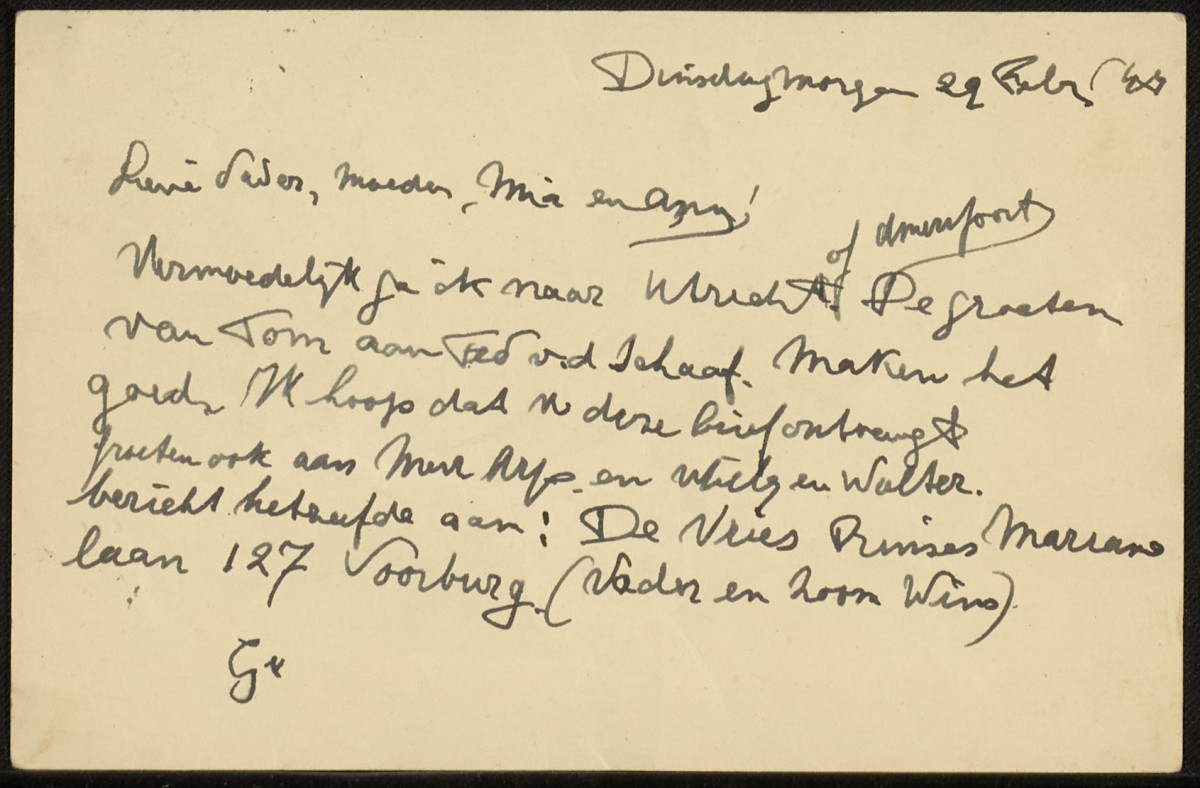 Dinsdagmorgen 29 Febr. '44
Lieve Vader, Moeder, Mia en
of Amersfoort
Vermoedelijk ga ik naar Utrecht! De groeten
van Tom aan Ted v.d Schaaf. Maken het
goed. Ik hoop dat U deze brief ontvangt
groeten ook aan Mevr en en Wolter.
bericht hetzelfde aan: De Vries Prinses Mariane
laan 127 Voorburg. (Vader en zoon Wim).